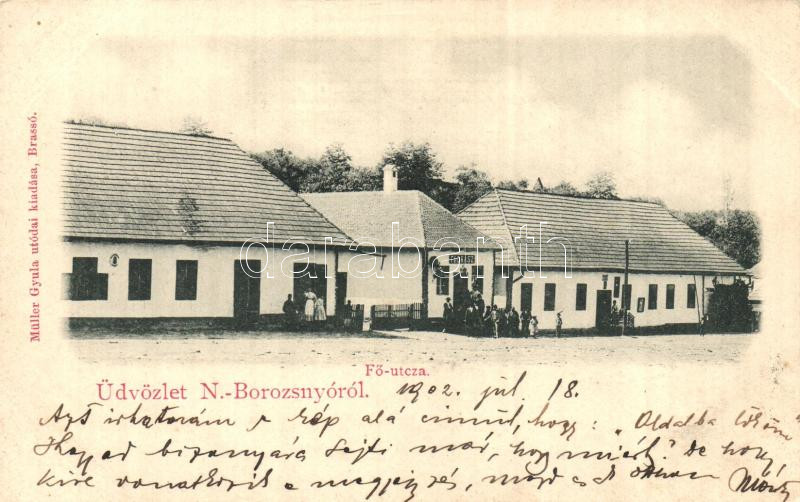 Müller Gyula utódai kiadása, Brassó.
darabanth
Fő-utcza.
Üdvözlet N.-Borozsnyóról. 1902. júl 18.
Azt irhatnám a kép alá cimül, hogy: „Oldalba
Hagyad bizonyára sejti már, hogy miért." de hogy
kire vonatkozik a megjegyzés, majd